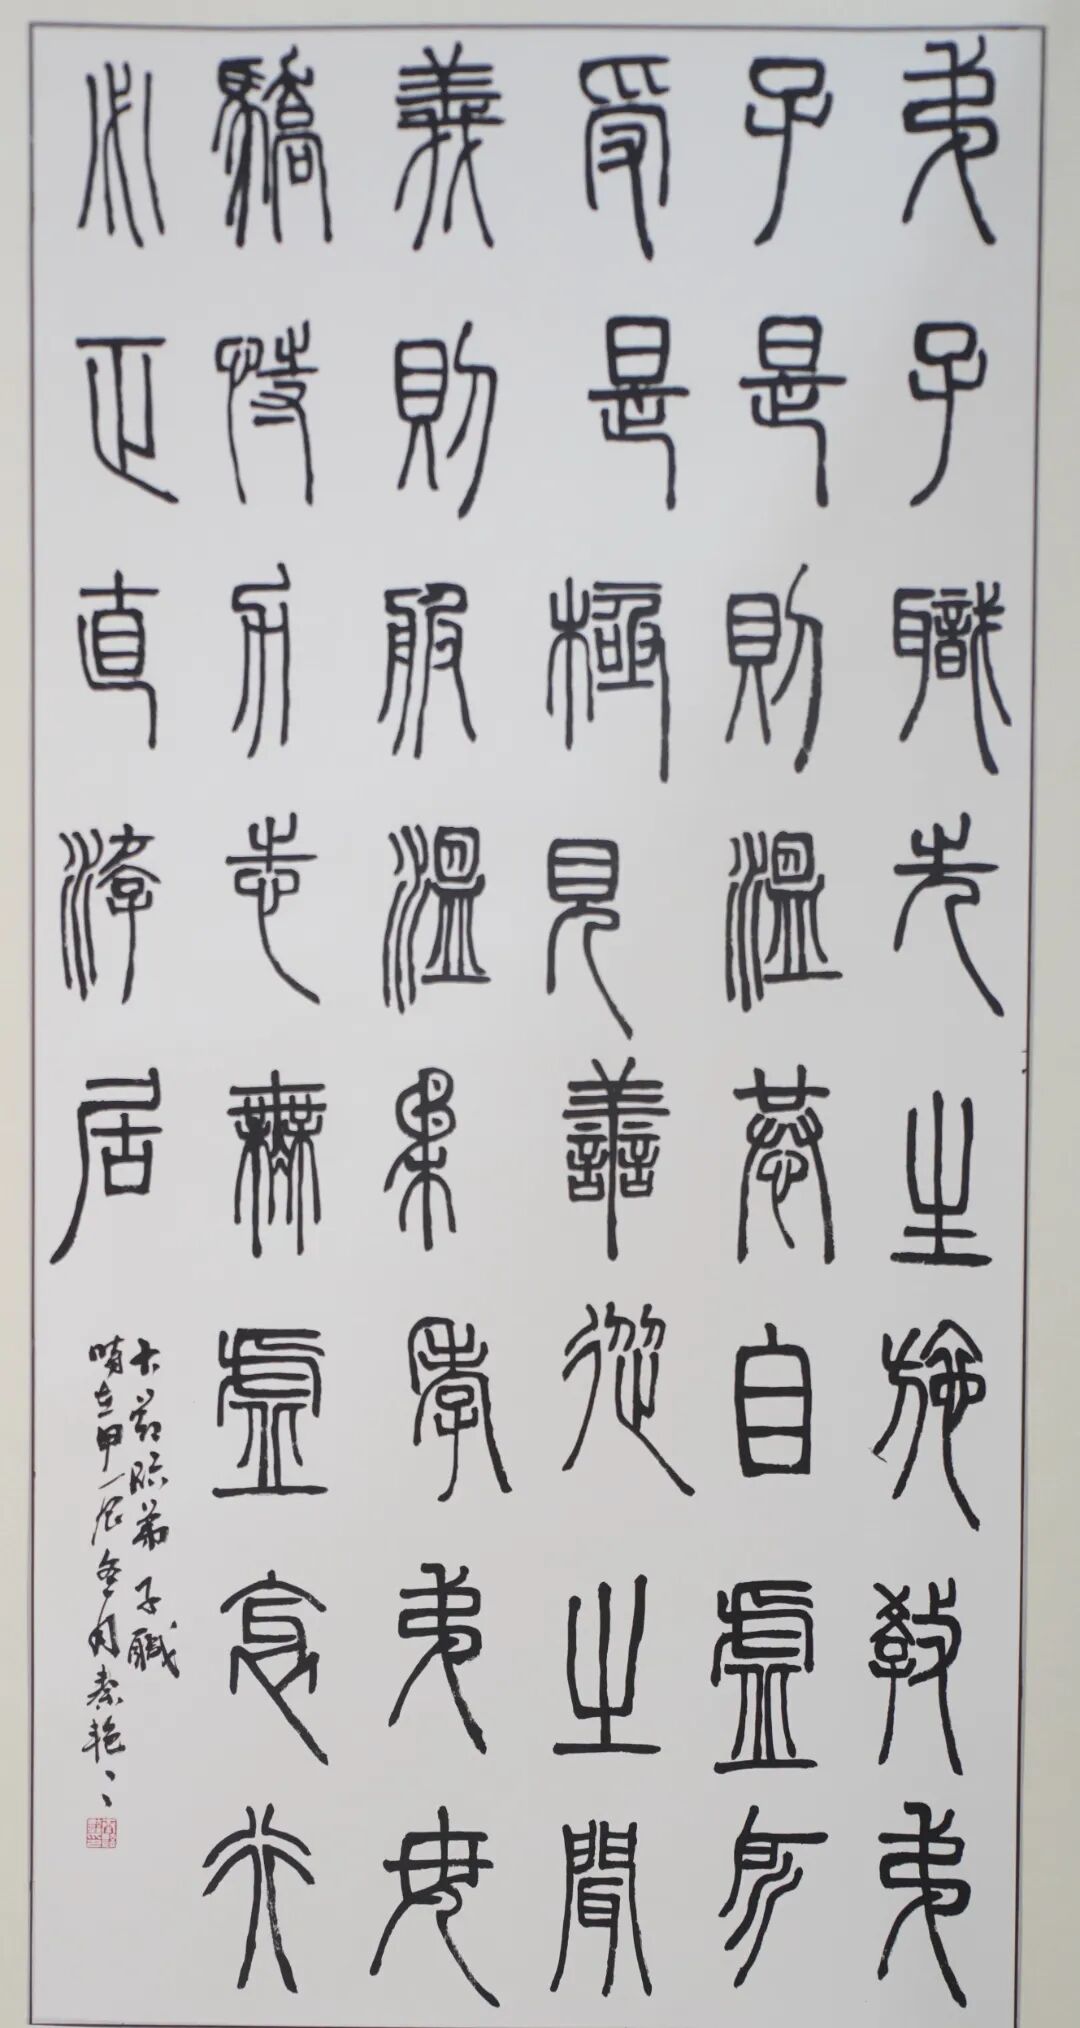 弟子職先生施教弟
子是則溫恭自虛所
受是極見善從之聞
義則服溫柔孝弟毋
驕恃力志無虛衺行
必正直游居
临弟子職
時在甲辰冬月秦艳